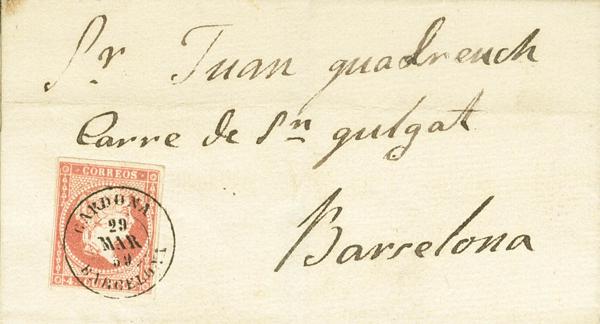 Sr Juan guadreuch
Carre de Sn gulgat
Barselona
CORREOS
CARDONA
29
MAR
59
BARCELONA